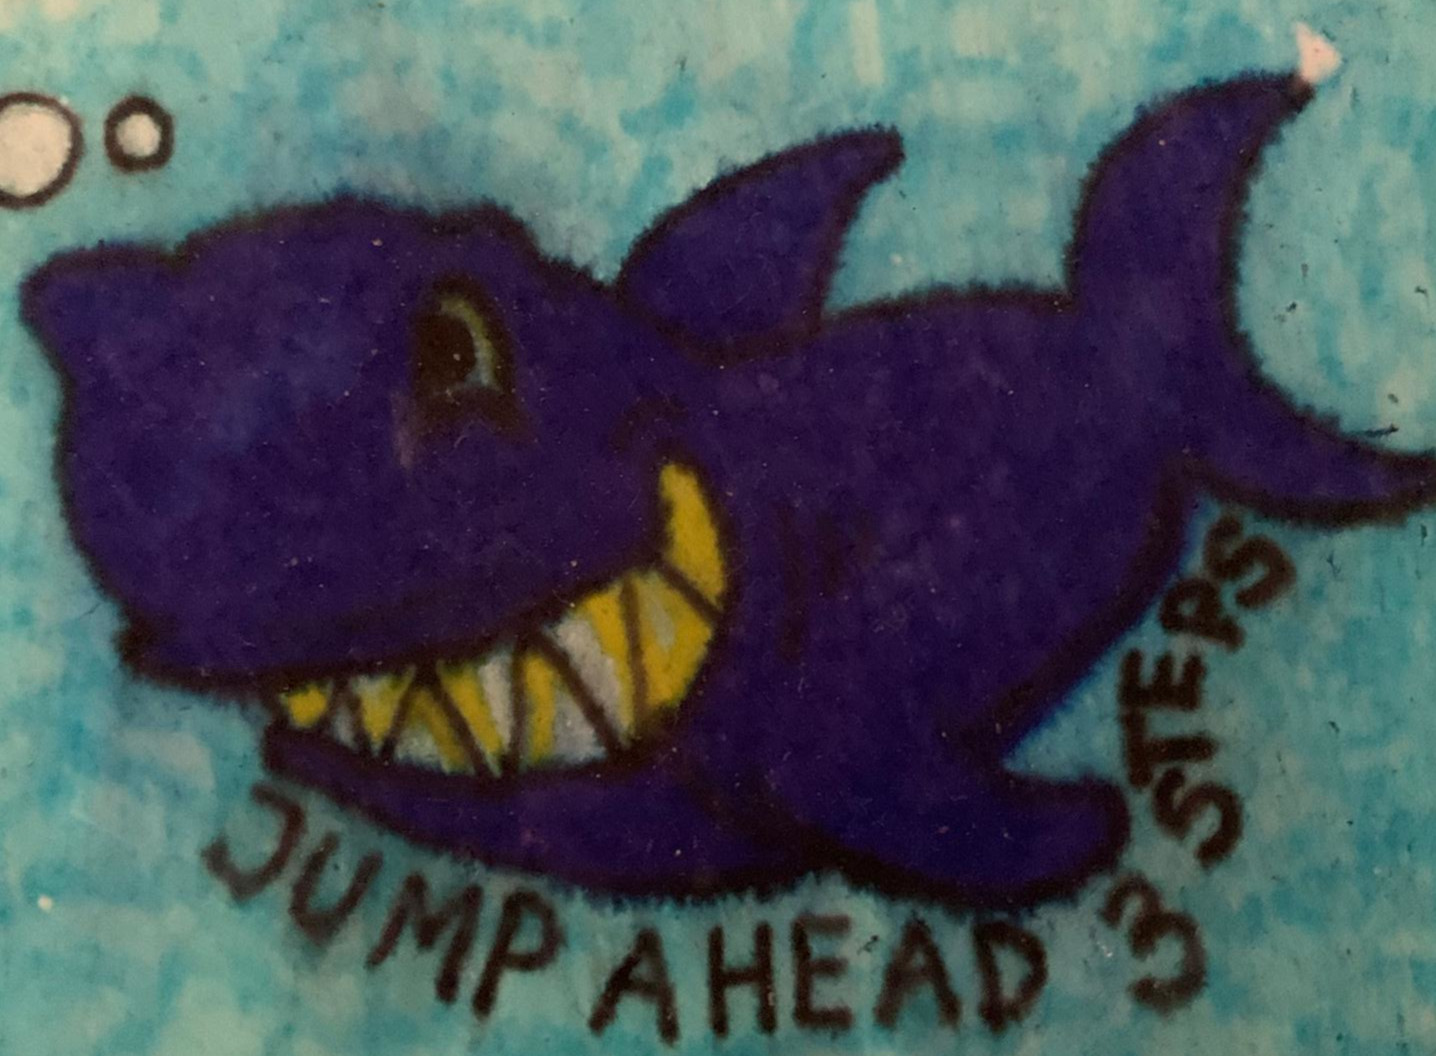 JUMP AHEAD 3 STEPS